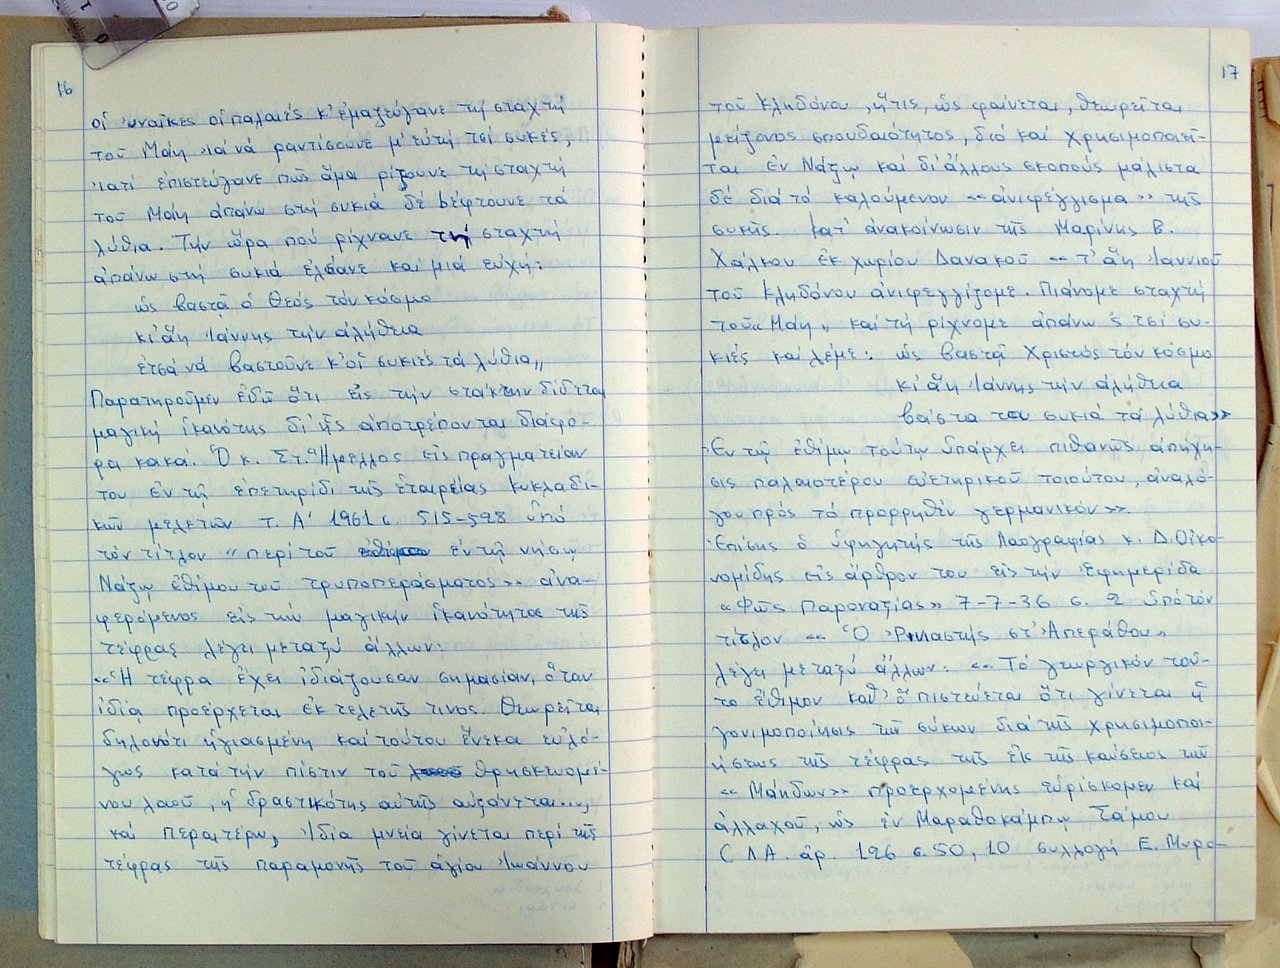 16
οἱ 'υναῖκες οἱ παλαιές κ' ἐμαζεύγανε τή σταχτή
τοῦ Μάη 'ιά νά ραντίσουνε μ' εὐτή τσί συκές,
'ιατί ἐπιστεύγανε πῶς ἅμα ρίξουνε τή σταχτή
τοῦ Μάη ἀπάνω στή συκιά δέ bέφτουνε τά
λύθια. Τήν ὥρα πού ρίχνανε τή σταχτή
ἀπάνω στή συκιά ἐλέανε καί μιά εὐχή:
ὡς βαστᾶ ὁ Θεός τόν κόσμο
κι ἅη 'Ιάννης τήν ἀλήθεια
ἐτσά νά βαστοῦνε κ' οἱ συκιές τά λύθια„
Παρατηροῦμεν ἐδῶ ὅτι εἰς τήν στάκτην δίδεται
μαγική ἱκανότης δι' ἧς ἀποτρέπονται διάφο-
ρα κακά. Ὁ κ. Στ. Ἠμελλος εἰς πραγματείαν
του ἐν τῇ ἐπετηρίδι τῆς ἑταιρείας κυκλαδι-
κῶν μελετῶν τ. Α' 1961 σ. 515-528 ὑπό
τόν τίτλον " περί τοῦ ἐν τῇ νήσῳ
Νάξῳ ἐθίμου τοῦ τρυποπεράσματος» ἀνα-
φερόμενος εἰς τήν μαγικήν ἱκανότητα τῆς
τέφρας λέγει μεταξύ ἄλλων:
«Ἡ τέφρα ἔχει ἰδιάζουσαν σημασίαν, ὅταν
ἰδίᾳ προέρχεται ἐκ τελετῆς τινος. Θεωρεῖται
δηλονότι ἡγιασμένη καί τούτου ἕνεκα εὐλό-
γως κατά τήν πίστιν τοῦ θρησκευομέ-
νου λαοῦ, ἡ δραστικότης αὐτῆς αὐξάνεται...,
καί περαιτέρω, 'Ιδία μνεία γίνεται περί τῆς
τέφρας τῆς παραμονῆς τοῦ ἁγίου Ἰωάννου
17
τοῦ Κληδόνου, ἥτις, ὡς φαίνεται, θεωρεῖται
μείζονος σπουδαιότητος, διό καί χρησιμοποιεῖ-
ται ἐν Νάξῳ καί δι' ἄλλους σκοπούς μάλιστα
δέ διά τό καλούμενον «ἀνιφέγγισμα» τῆς
συκῆς. Κατ' ἀνακοίνωσιν τῆς Μαρίνης Β.
Χάλκου ἐκ χωρίου Δανακοῦ « τ' ἅη 'Ιαννιοῦ
τοῦ Κληδόνου ἀνιφεγγίζομε. Πιάνομε σταχτή
τοῦ „ Μάη „ καί τή ρίχνομε ἀπάνω ς τσί συ-
κιές καί λέμε: ὡς βαστᾷ Χριστός τόν κόσμο
κι ἅη 'Ιάννης τήν ἀλήθεια
βάστα του συκιά τά λύθια»
Ἐν τῷ ἐθίμῳ τούτῳ ὑπάρχει πιθανῶς ἀπήχη-
σις παλαιοτέρου εὐετηρικοῦ τοιούτου, ἀναλό-
γου πρός τό προρρηθέν γερμανικόν».
Ἐπίσης ὁ ὑφηγητής τῆς Λαογραφίας κ. Δ. Οἰκο-
νομίδης εἰς ἄρθρον του εἰς τήν Ἐφημερίδα
«Φῶς Παροναξίας» 7-7-36 σ. 2 ὑπό τόν
τίτλον « Ὁ 'Ρ'λαστής στ' 'Απεράθου„
λέγει μεταξύ ἄλλων: « Τό γεωργικόν τοῦ-
το ἔθιμον καθ' ὅ πιστεύεται ὅτι γίνεται ἡ
γονιμοποίησις τῶν σύκων διά τῆς χρησιμοποι-
ήσεως τῆς τέφρας τῆς ἐκ τῆς καύσεως τῶν
«Μάηδων» προερχομένης εὑρίσκομεν καί
ἀλλαχοῦ, ὡς ἐν Μαραθοκάμπῳ Σάμου
C ΛΑ. ἀρ. 126 σ. 50, 10 συλλογή Ε. Μυρο-